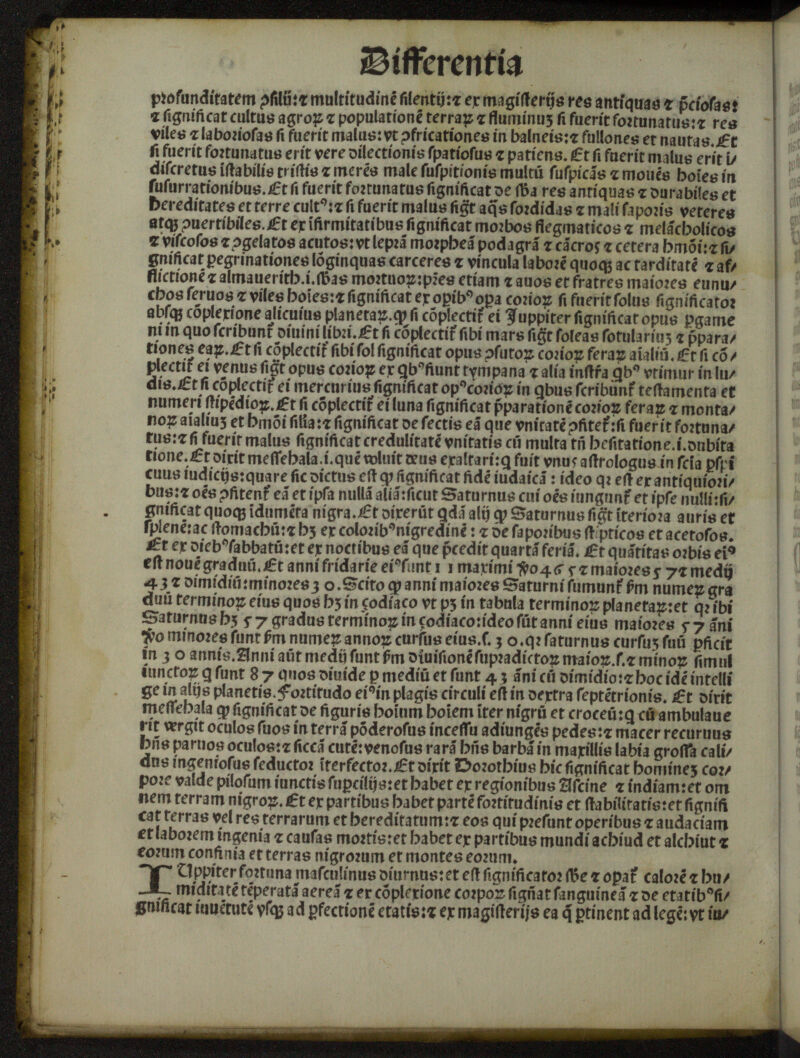 Differentia
profunditatem ꝯsiliũ:⁊ multitudinẽ silentij:⁊ ex magisterijs res antiquas ⁊ p̃ciosas:
⁊ significat cultus agroꝝ ⁊ populationẽ terraꝝ ⁊ fluminuʒ si fuerit fortunatus:⁊ res
viles ⁊ laboriosas si fuerit malus: vt ꝯfricationes in balneis:⁊ fullones et nautas. Et
si fuerit fortunatus erit vere dilectionis spatiosus ⁊ patiens. Et si fuerit malus erit i/
discretus ĩstabilis tristis ⁊ merẽs male suspitionis multũ suspicãs ⁊ mouẽs hoĩes in
susurrationibus. Et si fuerit fortunatus significat de sba res antiquas ⁊ durabiles et
hereditates et terre cultꝰ:⁊ si fuerit malus sig̃t aq̃s sordidas ⁊ mali saporis veteres
atqꝫ ꝯuertibiles. Et ex ĩfirmitatibus significat morbos flegmaticos ⁊ melãcholicos
⁊ viscosos ⁊ ꝯgelatos acutos: vt leprã morpheã podagrã ⁊ cãcroʒ ⁊ cetera hmõi:⁊ si/
gnificat pegrinationes lõginquas carceres ⁊ vincula laborẽ quoqꝫ ac tarditatẽ ⁊ af/
flictionẽ ⁊ almauerith.i. sbas mortuoꝝ: p̃res etiam ⁊ auos et fratres maiores eunu/
chos seruos ⁊ viles hoĩes:⁊ significat ex opibꝰ opa corioꝝ si fuerit solus significator
absqꝫ cõplexione alicuius planetaꝝ. qꝫ si cõplectit̃ ei Juppiter significat opus pgame
ni in quo scribunt̃ diuini libri. Et si cõplectit̃ sibi mars sig̃t soleas sotulariuʒ ⁊ p̃para/
tiones eaꝝ. Et si cõplectit̃ sibi sol significat opus ꝯsutoꝝ corioꝝ feraꝝ aĩaliũ. Et si cõ/
plectit̃ ei venus sig̃t opus corioꝝ ex qbꝰ fiunt tympana ⁊ alia instr̃a qbꝰ vtimur in lu/
dis. Et si cõplectit̃ ei mercurius significat opꝰ corioꝝ in qbus scribũnt̃ testamenta et
numeri stipẽdioꝝ. Et si cõplectit̃ ei luna significat p̃parationẽ corioꝝ feraꝝ ⁊ monta/
noꝝ aĩaliuʒ et hmõi sil̃ia:⁊ significat de sectis eã que vnitatẽ ꝯfitet̃: si fuerit fortuna/
tus:⁊ si fuerit malus significat credulitatẽ vnitatis cũ multa tñ hesitatione.i. dubita
tione. Et dixit messehala.i. quẽ voluit deus exaltari: q fuit vnus astrologus in scĩa ps̃i
cuius iudicijs: quare sic dictus est qꝫ significat fidẽ iudaicã : ideo qꝛ est ex antiquiori/
bus:⁊ oẽs ꝯfitent̃ eã et ipsa nullã aliã: sicut Saturnus cui oẽs iungunt̃ et ipse nulli: si/
gnificat quoqꝫ idumẽta nigra. Et dixerũt qdã alij qꝫ Saturnus sig̃t ĩteriora auris et
splenẽ: ac stomachũ:⁊ hʒ ex coloribꝰ nigredinẽ : ⁊ de saporibus stipticos et acetosos.
Et ex diebꝰ sabbatũ: et ex noctibus eã que p̃cedit quartã feriã. Et quãtitas orbis eiꝰ
est nouẽ graduũ. Et anni fridarie eiꝰ sunt 11 maximi v̊o 465 ⁊ maiores 57 ⁊ medij
43 ⁊ dimidiũ: minores 30. Scito qꝫ anni maiores Saturni sumunt̃ s̃m numeꝝ gra
duũ terminoꝝ eius quos hʒ in çodiaco vt pʒ in tabula terminoꝝ planetaꝝ: et qꝛ ibi
Saturnus hʒ 57 gradus terminoꝝ in çodiaco: ideo sũt anni eius maiores 57 ãni
v̊o minores sunt s̃m numeꝝ annoꝝ cursus eius.s. 30. qꝛ saturnus cursuʒ suũ pficit
in 30 annis. Anni aũt medij sunt s̃m diuisionẽ supradictoꝝ maioꝝ.s.⁊ minoꝝ simul
iunctoꝝ q sunt 87 quos diuide p mediũ et sunt 43 ãni cũ dimidio:⁊ hoc idẽ intelli
ge in alijs planetis. Fortitudo eiꝰ in plagis circuli est in dextra septẽtrionis. Et dixit
messehala qꝫ significat de figuris hoĩum hoĩem iter nigrũ et croceũ: q cũ ambulaue
rit vergit oculos suos in terrã põderosus incessu adiungẽs pedes:⁊ macer recuruus
hñs paruos oculos:⁊ siccã cutẽ: venosus rarã hñs barbã in maxillis labia grossa cali/
dus ingeniosus seductor ĩterfector. Et dixit Dorothius hic significat hominẽʒ cor/
pore valde pilosum iunctis supcilijs: et habet ex regionibus Alscine ⁊ indiam: et om
nem terram nigroꝝ. Et ex partibus habet partẽ fortitudinis et stabilitatis: et signifi
cat terras vel res terrarum et hereditatum:⁊ eos qui presunt operibus ⁊ audaciam
et laborem ingenia ⁊ causas mortis: et habet ex partibus mundi achiud et alchiut ⁊
eorum confinia et terras nigrorum et montes eorum.
IUppiter fortuna masculinus diurnus: et est significator sbe ⁊ opat̃ calorẽ ⁊ hu/
miditatẽ tẽperatã aereã ⁊ ex cõplexione corpoꝝ signat sanguineã ⁊ de etatibꝰ si/
gnificat iuuẽtutẽ vsqꝫ ad pfectionẽ etatis:⁊ ex magisterijs ea q̃ ptinent ad legẽ: vt iu/